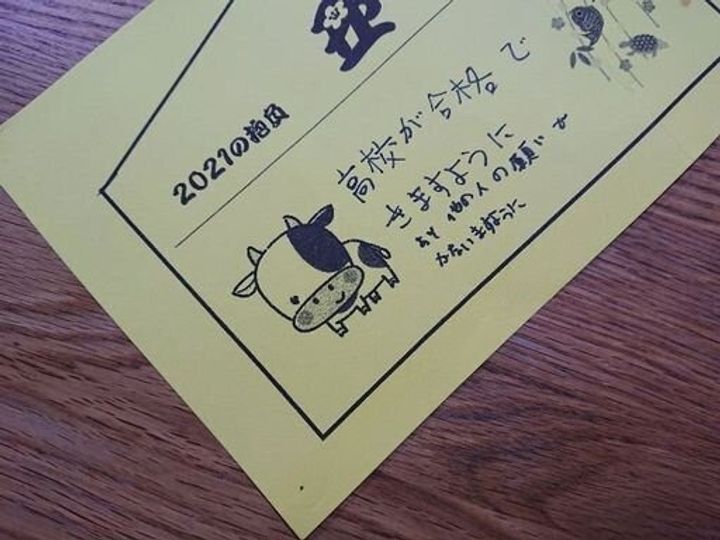 丑
2021の抱負
高校が合格で
きますように
あと他の人の願いが
かないますように